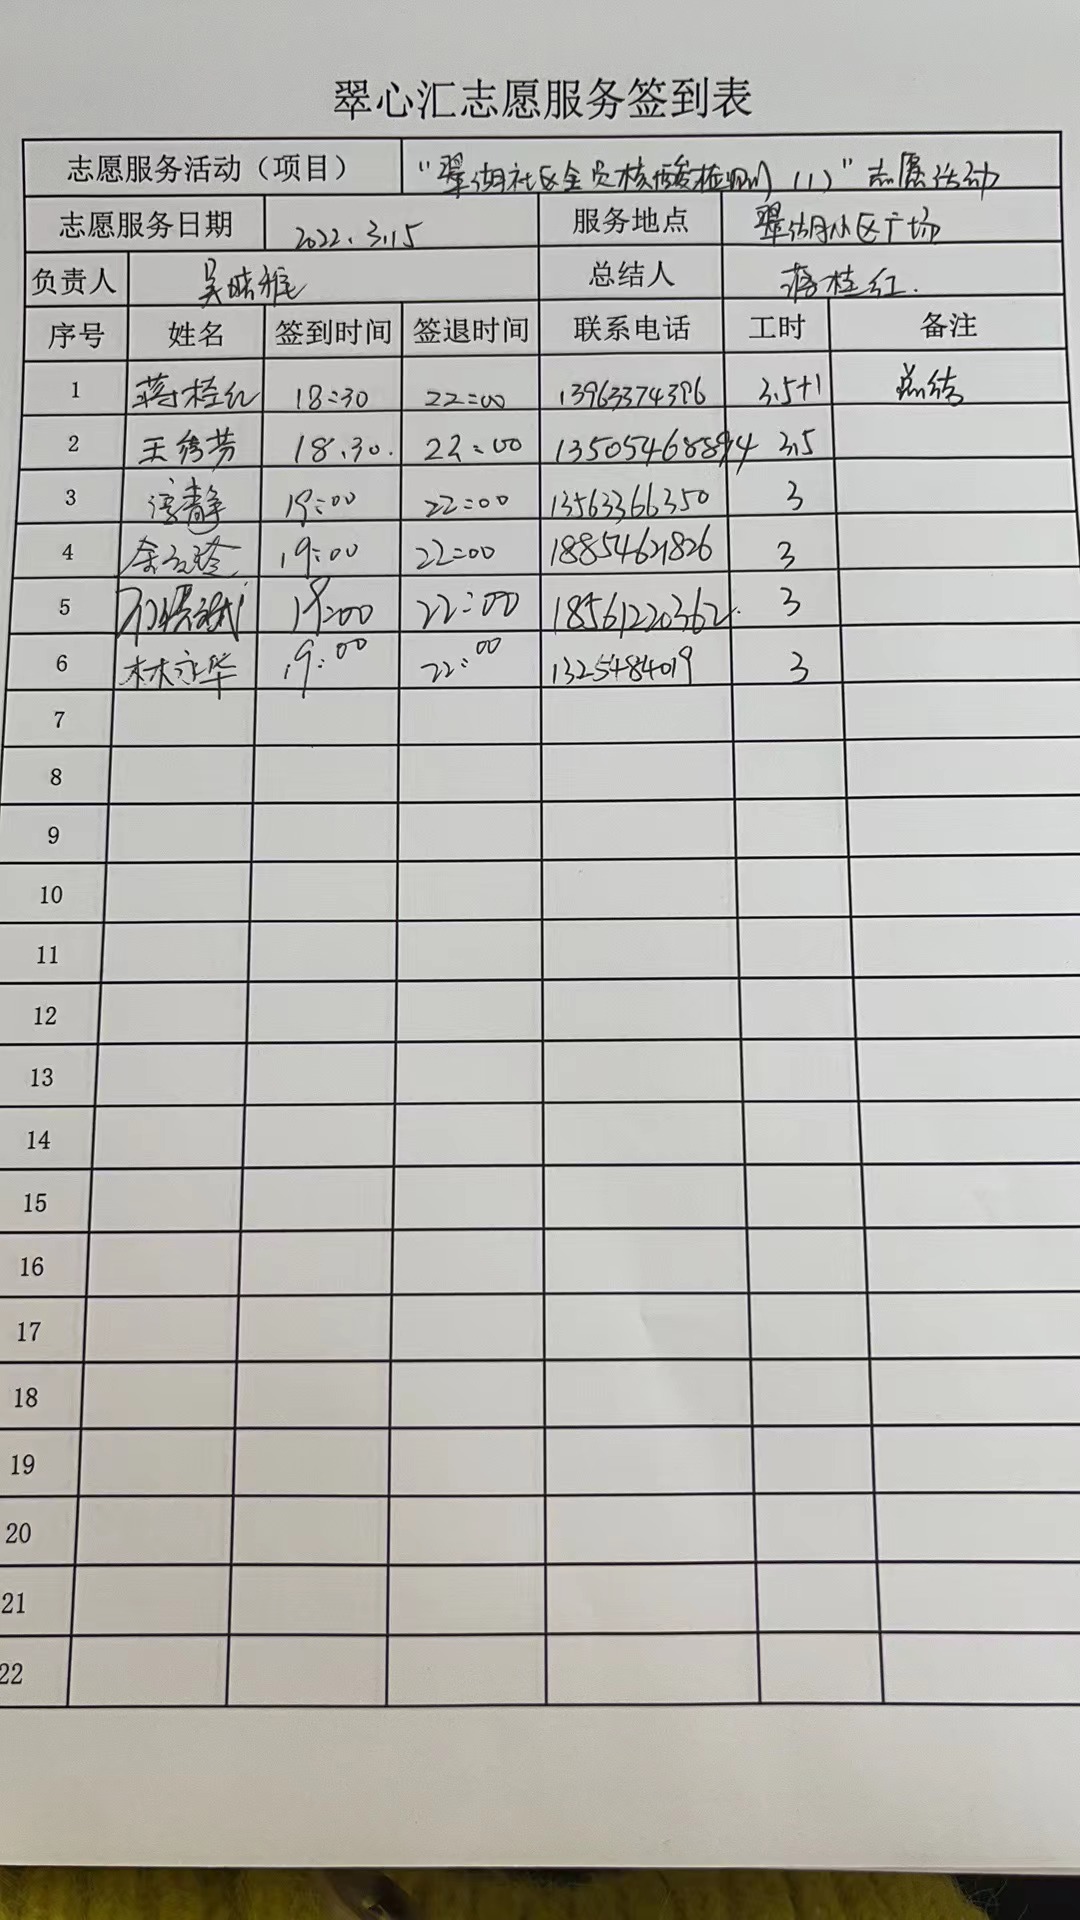 翠心汇志愿服务签到表
志愿服务活动（项目） "翠湖社区全员核酸检测（1）"志愿活动
志愿服务日期 2022.3.15 服务地点 翠湖小区广场
负责人 吴晓雅 总结人 蒋桂红.
序号 姓名 签到时间 签退时间 联系电话 工时 备注
1 蒋桂红 18:30 22:00 13963374396 3.5+1 总结
2 王秀芳 18:30. 22:00 13505468894 3.5
3 静 19:00 22:00 13563366350 3
4 19:00 22:00 18854621826 3
5 19:00 22:00 18561220362. 3
6 林永华 19:00 22:00 1325484019 3
7
8
9
10
11
12
13
14
15
16
17
18
19
20
21
22